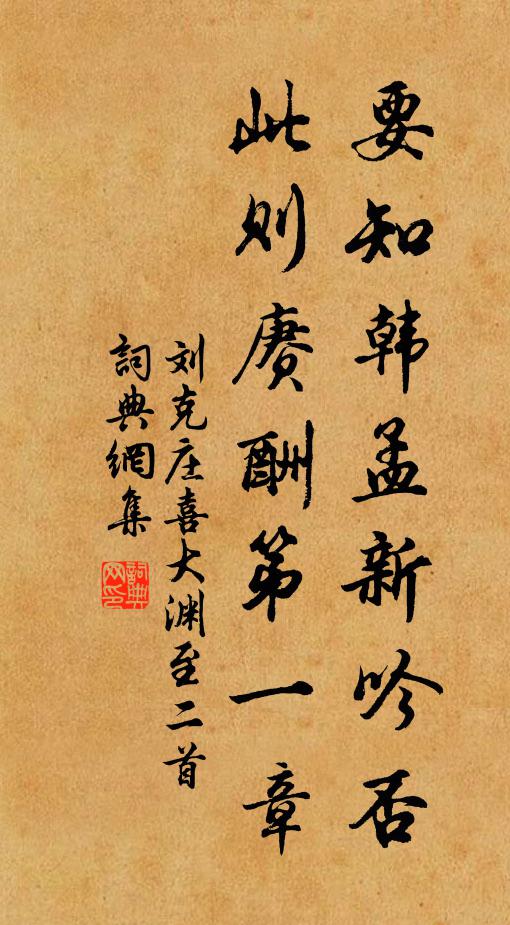 要知韩孟新吟否
此则赓酬第一章
刘克庄喜大渊至二首
詞典網集
詞典
网印